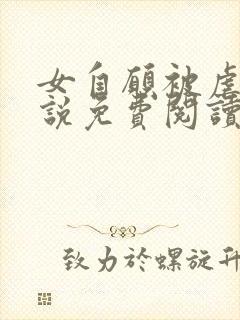 女自願被虐
說免費閱讀
致力於螺旋升